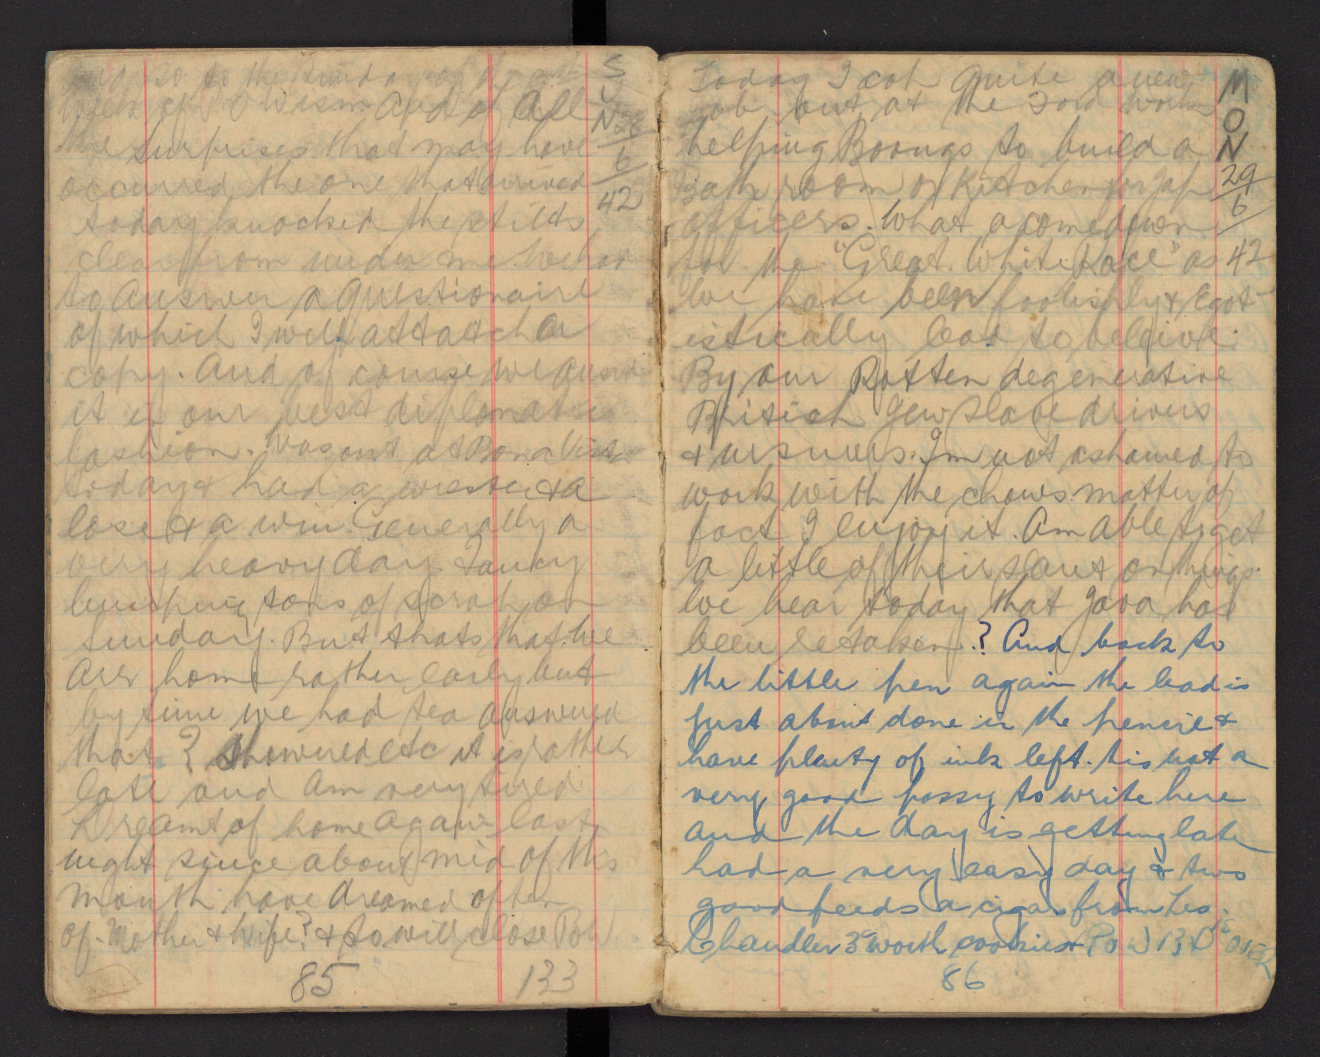 And so to the Sunday of
week of P.O.Wism And of All
the surprises that may have
occurred the one that arrived
today knocked the stilts
clear from under me We had
to answer a questionaire
of which I will attatch a
copy. And of course we answered
it in our best diplomatic
fashion. Was out at Bona Vista
today & had a & a
lose & a win. Generally a
very heavy day. Fancy
lumping tons of scrap on
Sunday. But thats that. We
are home rather early but
by time we had tea answered
that ? showered etc it is rather
late and am very tired
Dreamt of home again last
night since about mid of this
month have dreamed often
of Mother & Wife? & so will close POW
85 133
SUN
28
6
42
Today I got quite a new
job out at the Ford works
helping Boongs to build a
Bath room or Kitchen for Jap
officers. What a comedown
for the "Great White Race" as
we have been foolishly & Egot-
istically lead to beleive.
By our Rotten degenerative
British Jew slave drivers
& ursurers. Im not ashamed to
work with the chows matter of
fact I enjoy it. Am able to get
a little of their slant on things.
We hear today that Java has
been retaken.? And back to
the little pen again the lead is
just about done in the pencil &
have plenty of ink left. tis not a
very good possy to write here
and the day is getting late
had a very easy day & two
good feeds a cigar from Les.
Chandler 3c worth cookies & P.O.W 134
86
MON
29
6
42